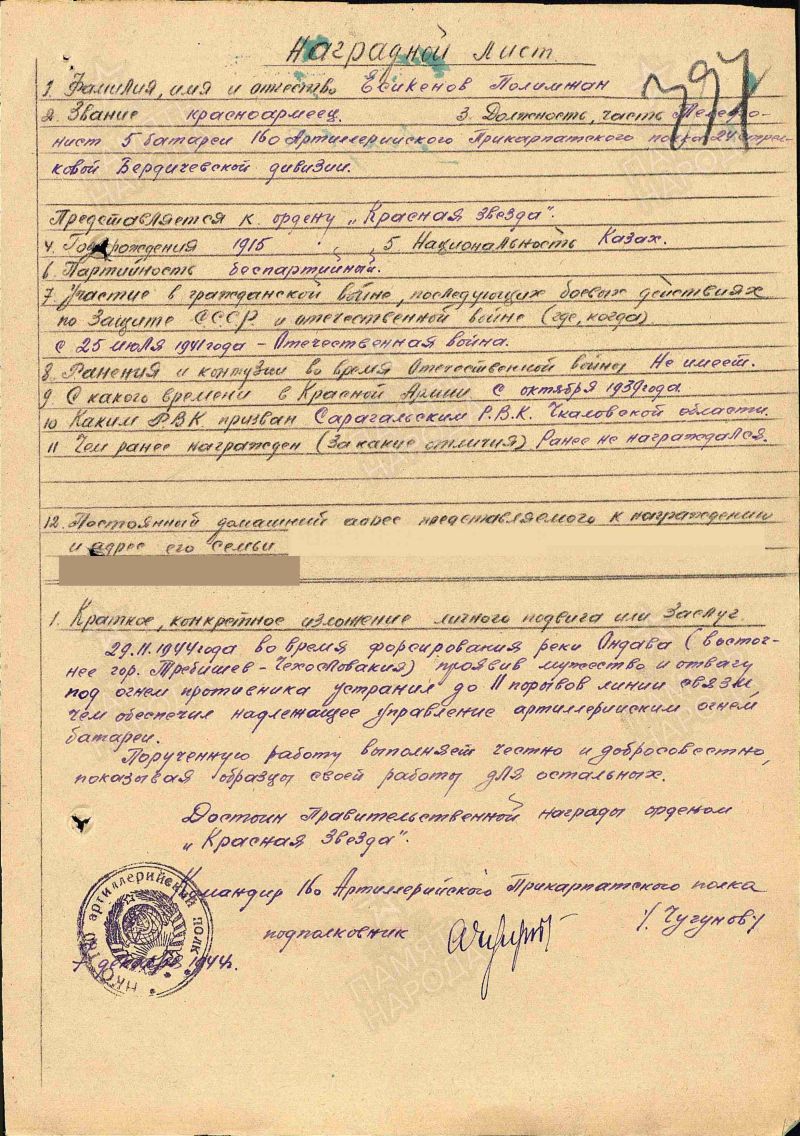 Наградной лист
397
1. Фамилия, имя и отчество Есикенов Полимжан
2. Звание красноармеец. 3. Должность, часть Телефо-
нист 5 батареи 160 Артиллерийского Прикарпатского полка 24 стрел-
ковой Бердичевской дивизии.
Представляется к ордену „Красная звезда".
4. Год рождения 1915 5. Национальность Казах.
6. Партийность беспартийный.
7. Участие в гражданской войне, последующих боевых действиях
по защите СССР и отечественной войне (где, когда)
с 25 июля 1941 года - Отечественная война.
8. Ранения и контузии во время Отечественной войны Не имеет.
9. С какого времени в Красной Армии с октября 1939 года
10 Каким РВК призван Сарагальским Р.В.К. Чкаловской области.
11 Чем ранее награжден (за какие отличия) Ранее не награждался.
12. Постоянный домашний адрес представляемого к награждению
и адрес его семьи
1. Краткое, конкретное изложение личного подвига или заслуг
29.11.1944 года во время форсирования реки Ондава (восточ-
нее гор. Требишев - Чехословакия) проявив мужество и отвагу
под огнем противника устранил до 11 порывов линии связи,
чем обеспечил надлежащее управление артиллерийским огнем
батареи.
Порученную работу выполняет честно и добросовестно,
показывая образцы своей работы для остальных.
Достоин Правительственной награды орденом
„Красная Звезда".
Командир 160 Артиллерийского Прикарпатского полка
подполковник /Чугунов/
7 декабря 1944г.
НКО артиллерийский полк
ПАМЯТЬ НАРОДА